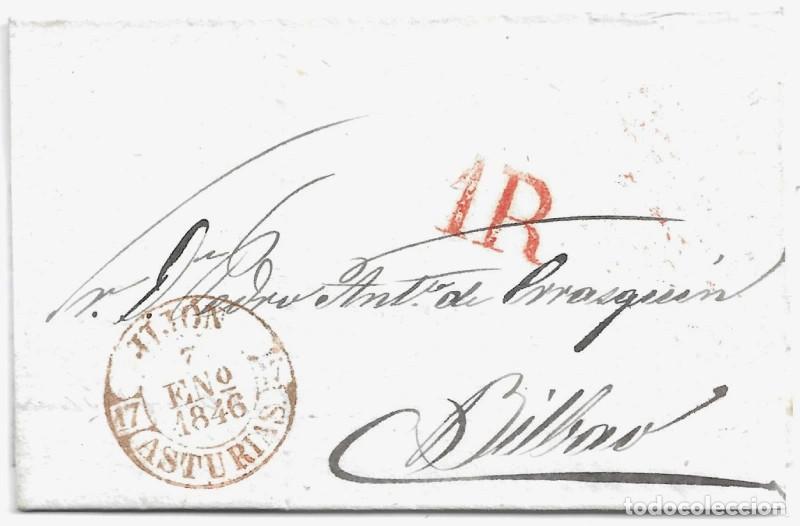 1R
Sr. Dn. Pedro Anto. de Errasquin
Bilbao
JIJON
7
ENO
1846
17
ASTURIAS
todocoleccion